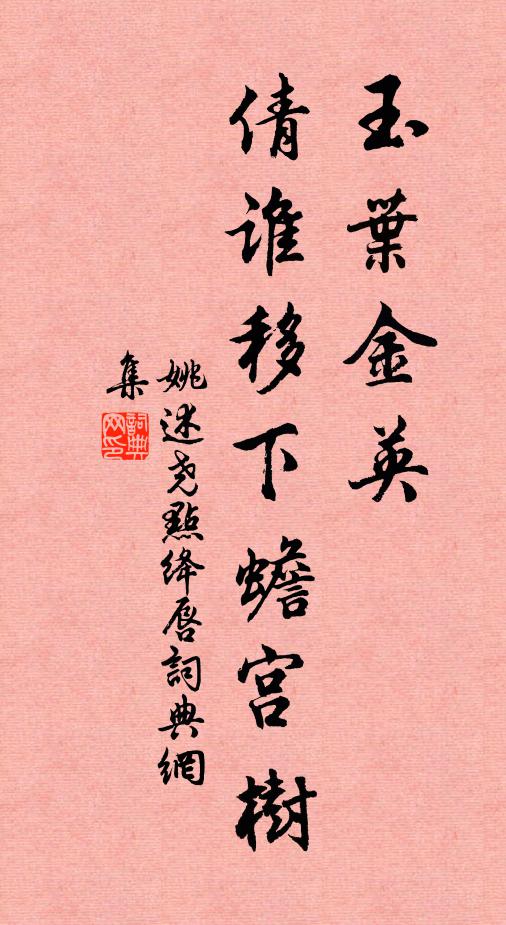 玉葉金英
倩誰移下蟾宮樹
姚述堯點絳唇詞典網
集
詞典网印